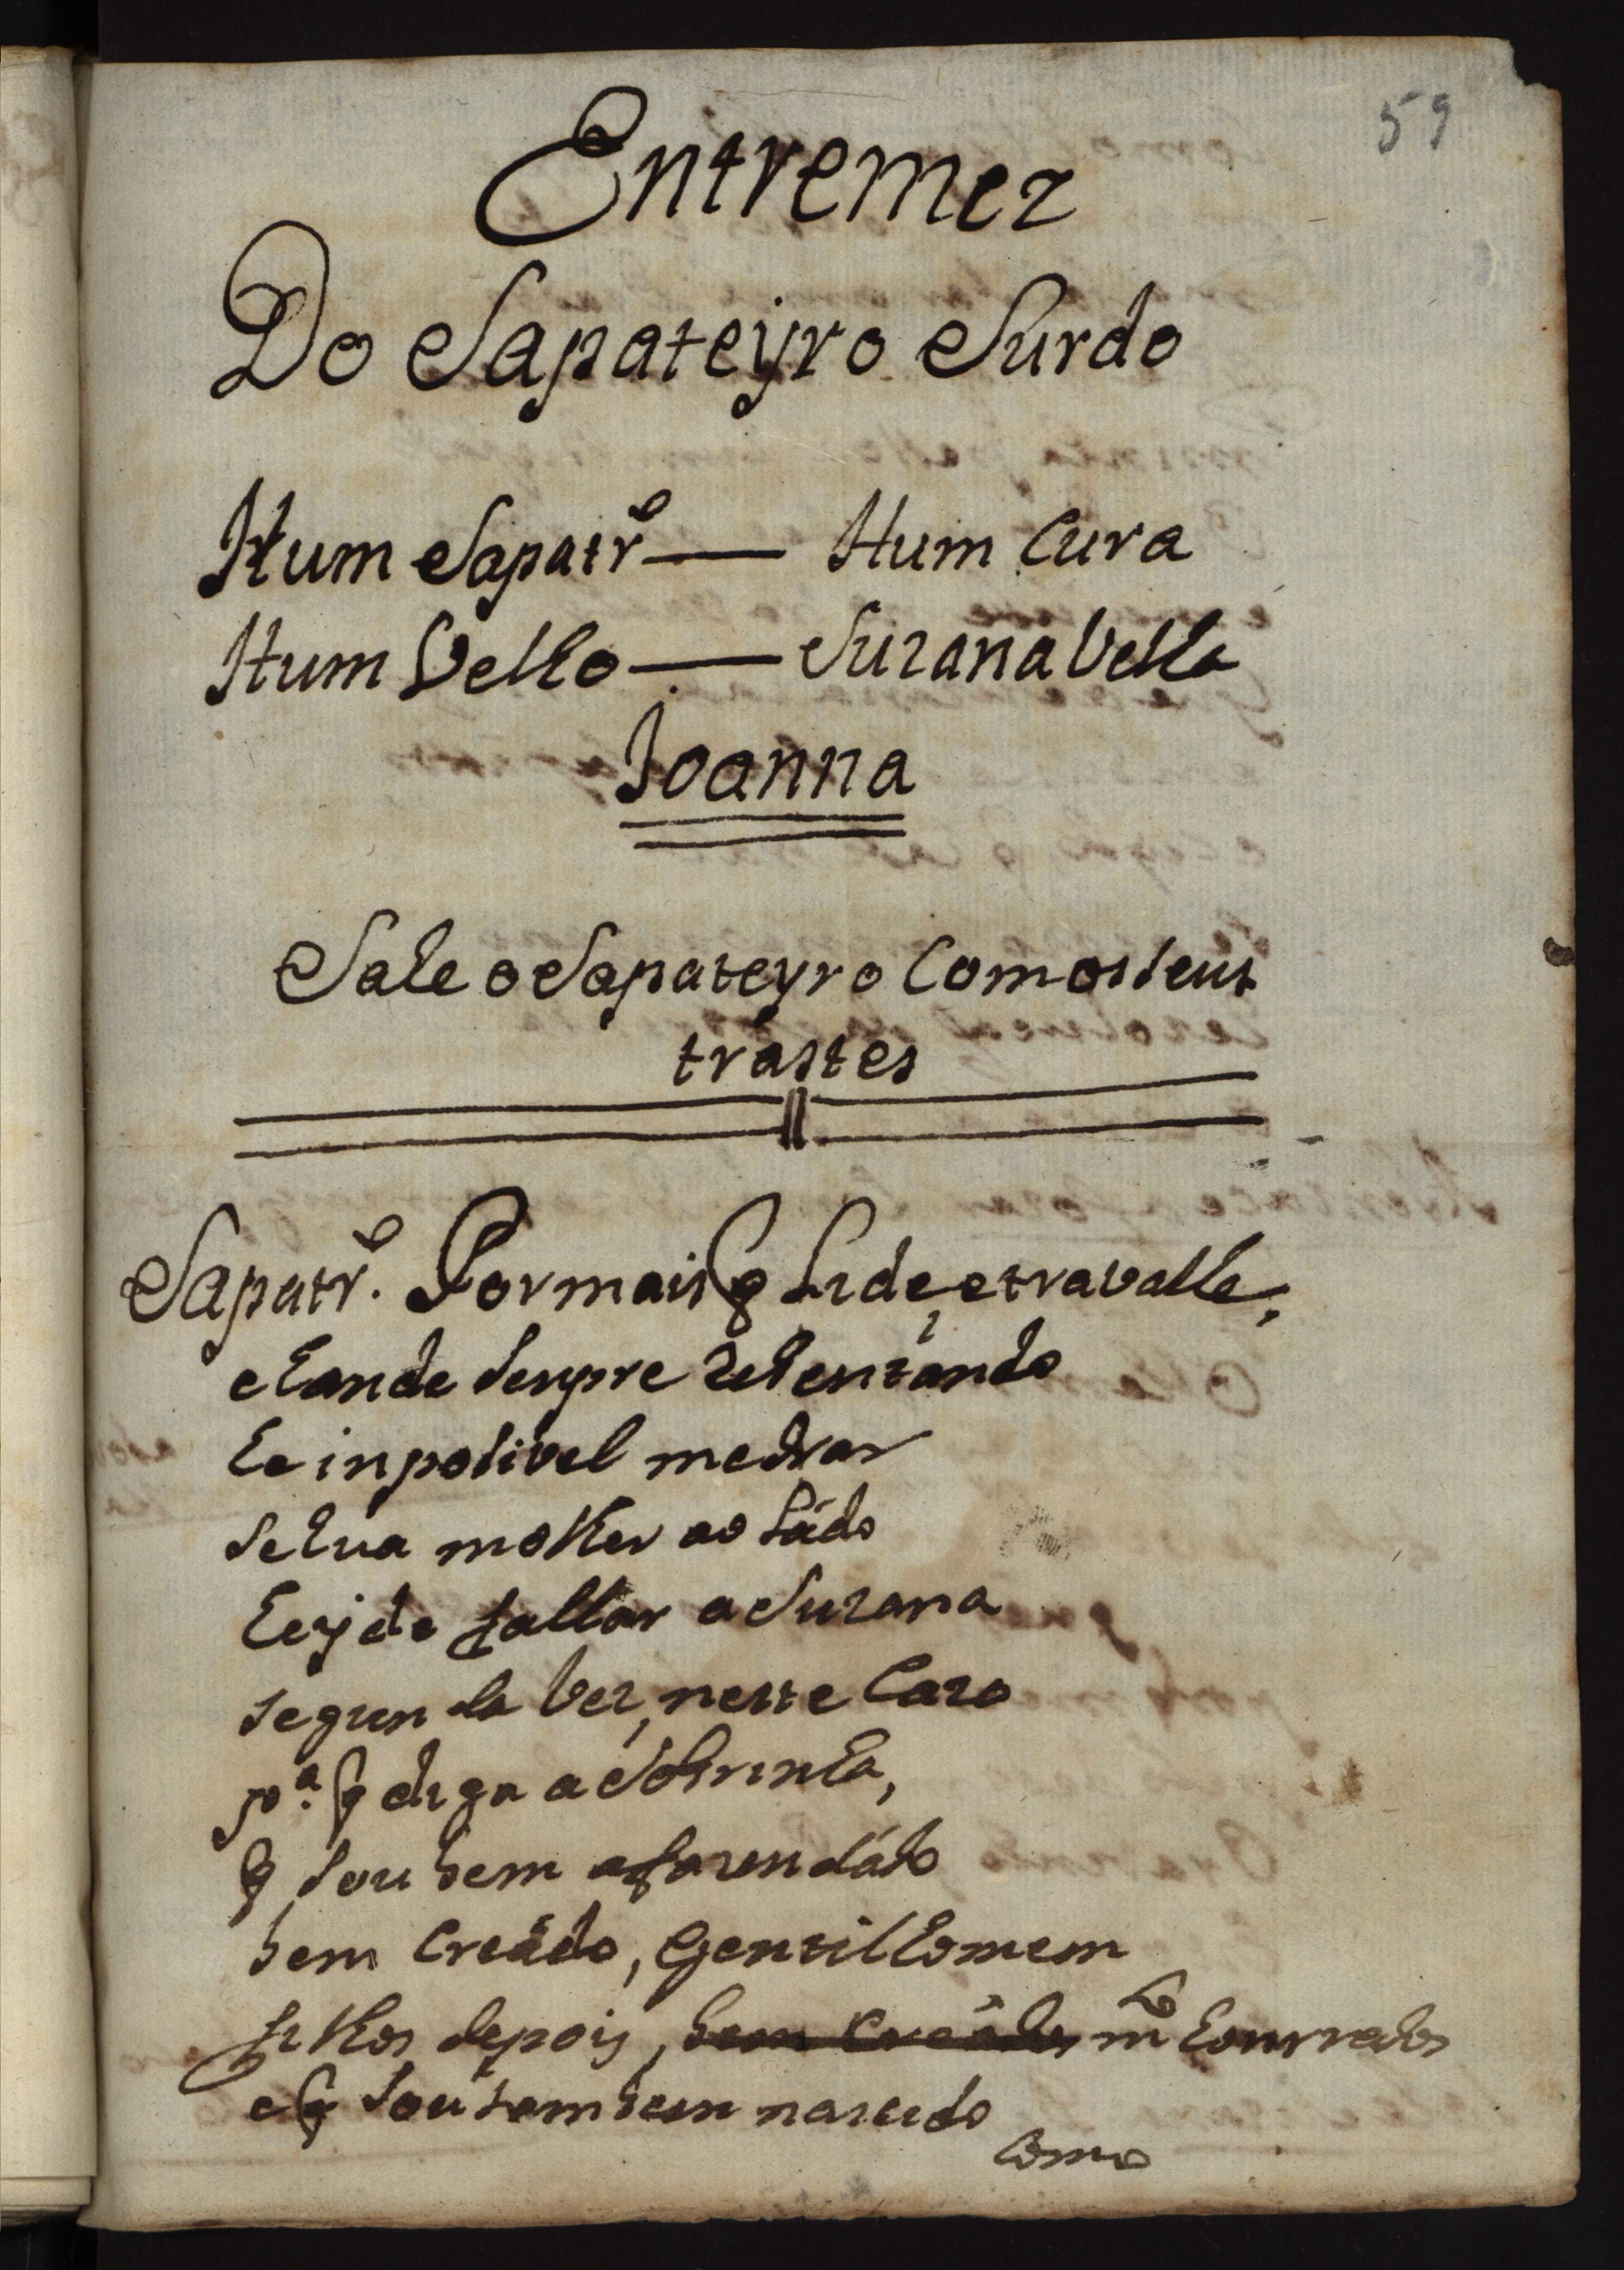 59
Entremez
Do Sapateyro Surdo
Hum Sapatr.º — Hum Cura
Hum Velho — Suzana Velha
Joanna
Sale o Sapateyro Com os seus
trastes
Sapatr.º Por mais q̃ Lide, e travalhe,
e hande senpre
he inposivel medrar
se hua molher ao ládo
hey de fallar a Suzana
segunda vez, neste Cazo
p.ª q̃ diga a Sobrinha,
q̃ sou bem afazendádo
bem Creádo, Gentilhomem
filhos depois, bem Creádos m.to honrrados
e q̃ sou tambem nacido
Como